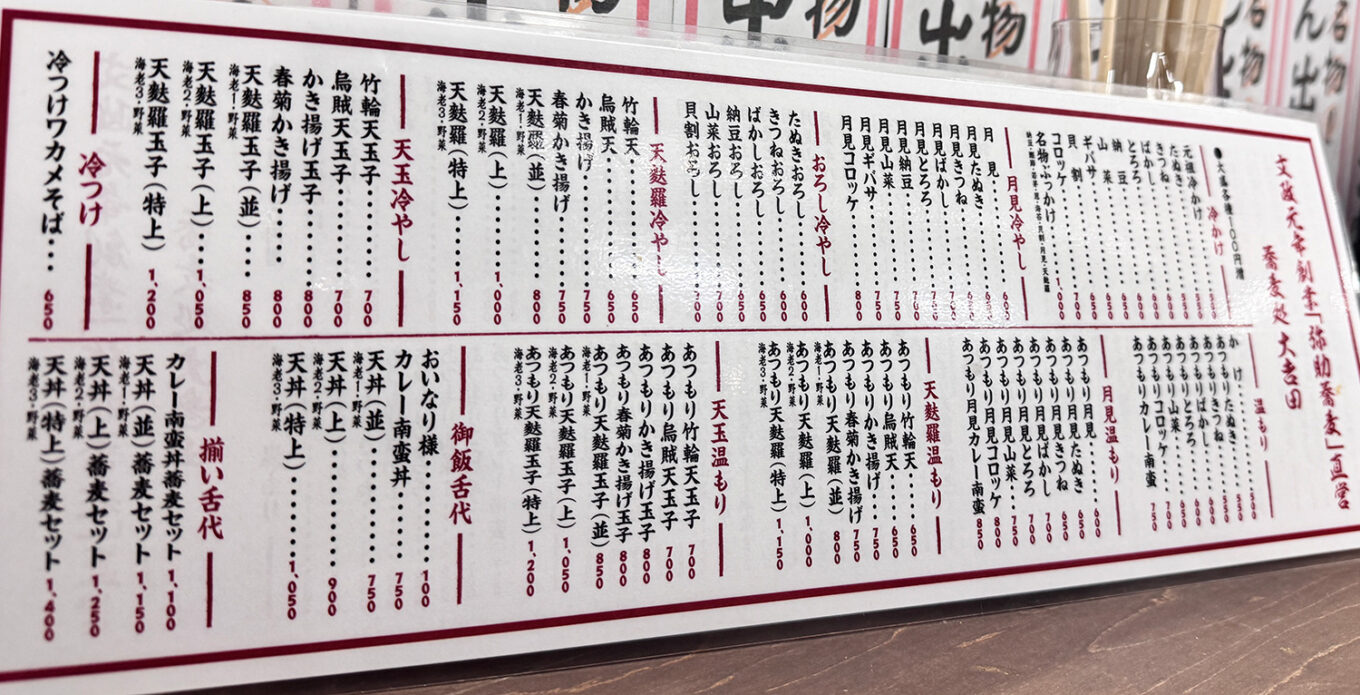 文政元年創業「弥助蕎麦」直営
蕎麦処 大吉田
●大盛各種100円増
冷かけ
元祖冷かけ
たぬき
きつね
ばかし
とろろ
納豆
山菜
ギバサ
貝割
コロッケ
名物ぶっかけ 1,000
月見冷やし
月見
月見たぬき
月見きつね
月見ばかし
月見とろろ
月見納豆
月見山菜
月見ギバサ
月見コロッケ 800
おろし冷やし
たぬきおろし 600
きつねおろし 600
ばかしおろし 650
納豆おろし 650
山菜おろし 700
貝割おろし 650
天麩羅冷やし
竹輪天 650
烏賊天 650
かき揚げ 750
春菊かき揚げ 750
天麩羅(並) 800
海老1・野菜
天麩羅(上) 1,000
海老2・野菜
天麩羅(特上) 1,150
海老3・野菜
天玉冷やし
竹輪天玉子 700
烏賊天玉子 700
かき揚げ玉子 800
春菊かき揚げ 800
天麩羅玉子(並) 850
海老1・野菜
天麩羅玉子(上) 1,050
海老2・野菜
天麩羅玉子(特上) 1,200
海老3・野菜
冷つけ
冷つけワカメそば 650
温もり
かけ 500
あつもりたぬき 550
あつもりきつね 550
あつもりばかし 600
あつもりとろろ 600
あつもり山菜
あつもりコロッケ 700
あつもりカレー南蛮 750
月見温もり
あつもり月見 600
あつもり月見たぬき 650
あつもり月見きつね 650
あつもり月見ばかし 700
あつもり月見とろろ 700
あつもり月見山菜 750
あつもり月見コロッケ 800
あつもり月見カレー南蛮 850
天麩羅温もり
あつもり竹輪天 650
あつもり烏賊天 650
あつもりかき揚げ 750
あつもり春菊かき揚げ 750
あつもり天麩羅(並) 800
海老1・野菜
あつもり天麩羅(上) 1,000
海老2・野菜
あつもり天麩羅(特上) 1,150
海老3・野菜
天玉温もり
あつもり竹輪天玉子 700
あつもり烏賊天玉子 700
あつもりかき揚げ玉子 800
あつもり春菊かき揚げ玉子 800
あつもり天麩羅玉子(並) 850
海老1・野菜
あつもり天麩羅玉子(上) 1,050
海老2・野菜
あつもり天麩羅玉子(特上) 1,200
海老3・野菜
御飯舌代
おいなり様 100
カレー南蛮丼 750
天丼(並) 750
海老1・野菜
天丼(上) 900
海老2・野菜
天丼(特上) 1,050
海老3・野菜
揃い舌代
カレー南蛮丼蕎麦セット 1,100
天丼(並)蕎麦セット 1,150
海老1・野菜
天丼(上)蕎麦セット 1,250
海老2・野菜
天丼(特上)蕎麦セット 1,400
海老3・野菜